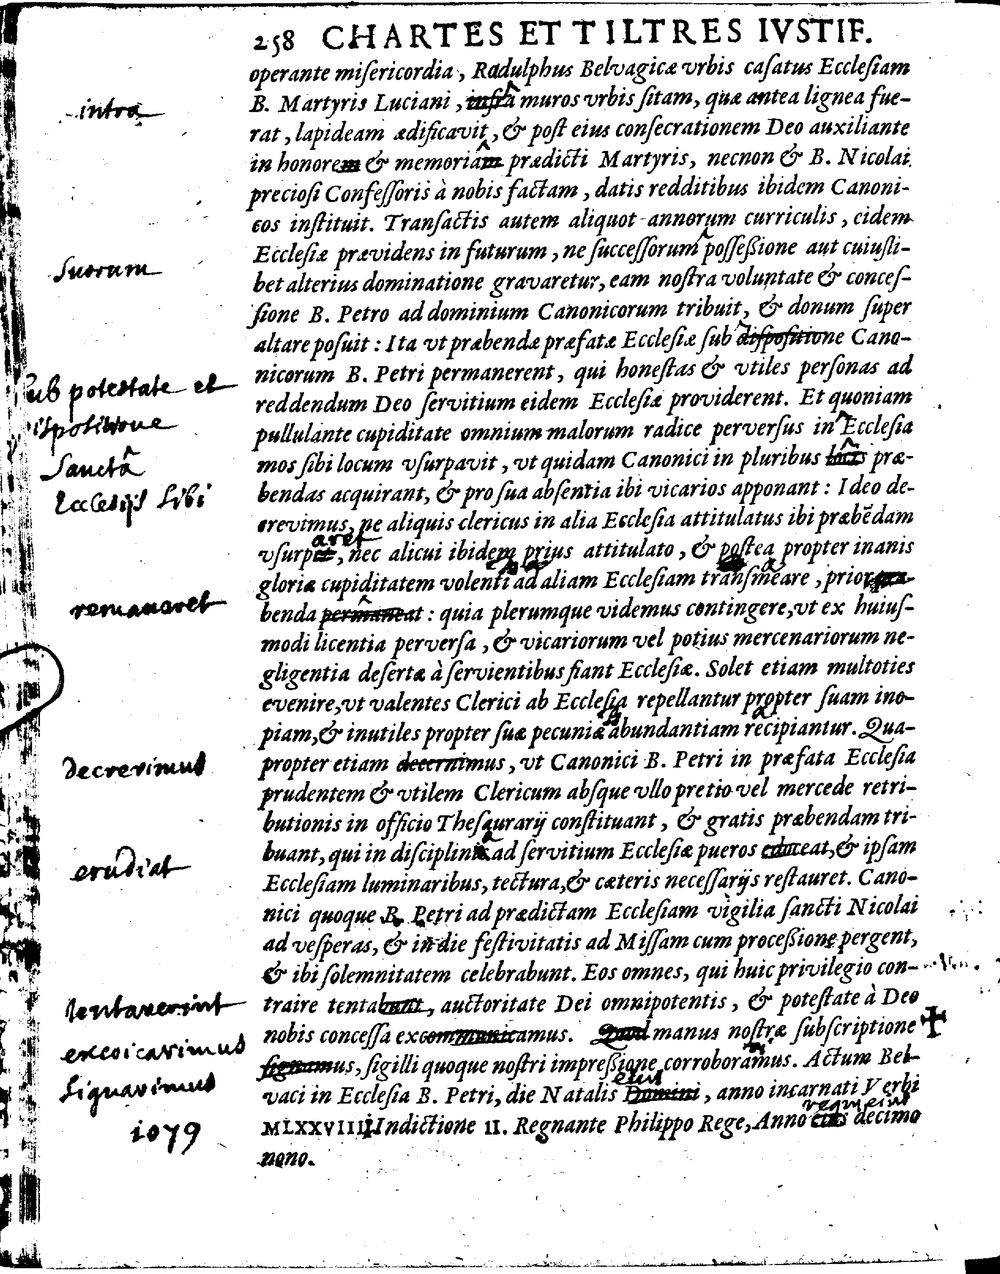 258 CHARTES ET TILTRES IVSTIF.
operante misericordia, Radulphus Belvagicæ vrbis casatus Ecclesiam
intra
B. Martyris Luciani, infrà muros vrbis sitam, quæ antea lignea fue-
rat, lapideam ædificavit, & post eius consecrationem Deo auxiliante
in honorem & memoriam prædicti Martyris, necnon & B. Nicolai
preciosi Confessoris à nobis factam, datis redditibus ibidem Canoni-
cos instituit. Transactis autem aliquot annorum curriculis, eidem
Ecclesiæ prævidens in futurum, ne successorum possessione aut cuiusli-
suorum
bet alterius dominatione gravaretur, eam nostra voluntate & conces-
sione B. Petro ad dominium Canonicorum tribuit, & donum super
altare posuit : Ita vt præbendæ præfatæ Ecclesiæ sub dispositione Cano-
nicorum B. Petri permanerent, qui honestas & vtiles personas ad
sub potestate et
reddendum Deo servitium eidem Ecclesiæ providerent. Et quoniam
dispositione
pullulante cupiditate omnium malorum radice perversus in Ecclesia
mos sibi locum vsurpavit, vt quidam Canonici in pluribus locis præ-
sanctâ
bendas acquirant, & pro sua absentia ibi vicarios apponant : Ideo de-
Ecclesijs sibi
crevimus, ne aliquis clericus in alia Ecclesia attitulatus ibi præbẽdam
aret
vsurpet, nec alicui ibidem prius attitulato, & postea propter inanis
gloriæ cupiditatem volenti ad aliam Ecclesiam transmeare, prior præ-
remaneret
benda permaneat : quia plerumque videmus contingere, vt ex huius-
modi licentia perversa, & vicariorum vel potius mercenariorum ne-
gligentia desertæ à servientibus fiant Ecclesiæ. Solet etiam multoties
evenire, vt valentes Clerici ab Ecclesia repellantur propter suam ino-
piam, & inutiles propter suæ pecuniæ abundantiam recipiantur. Qua-
propter etiam decernimus, vt Canonici B. Petri in præfata Ecclesia
decrevimus
prudentem & vtilem Clericum absque vllo pretio vel mercede retri-
butionis in officio Thesaurarij constituant, & gratis præbendam tri-
buant, qui in disciplina ad servitium Ecclesiæ pueros educeat, & ipsam
erudiat
Ecclesiam luminaribus, tectura, & cæteris necessarijs restauret. Cano-
nici quoque B. Petri ad prædictam Ecclesiam vigilia sancti Nicolai
ad vesperas, & in die festivitatis ad Missam cum processione pergent,
& ibi solemnitatem celebrabunt. Eos omnes, qui huic privilegio con-
tentaverint
traire tentabunt, auctoritate Dei omnipotentis, & potestate à Deo
nobis concessa excommunicamus. Quod manus nostræ subscriptione
excoicavimus
signamus, sigilli quoque nostri impressione corroboramus. Actum Bel-
signavimus
eius
vaci in Ecclesia B. Petri, die Natalis Domini, anno incarnati Verbi
regni eius
1079
MLXXVIIII Indictione II. Regnante Philippo Rege, Anno eius decimo
nono.